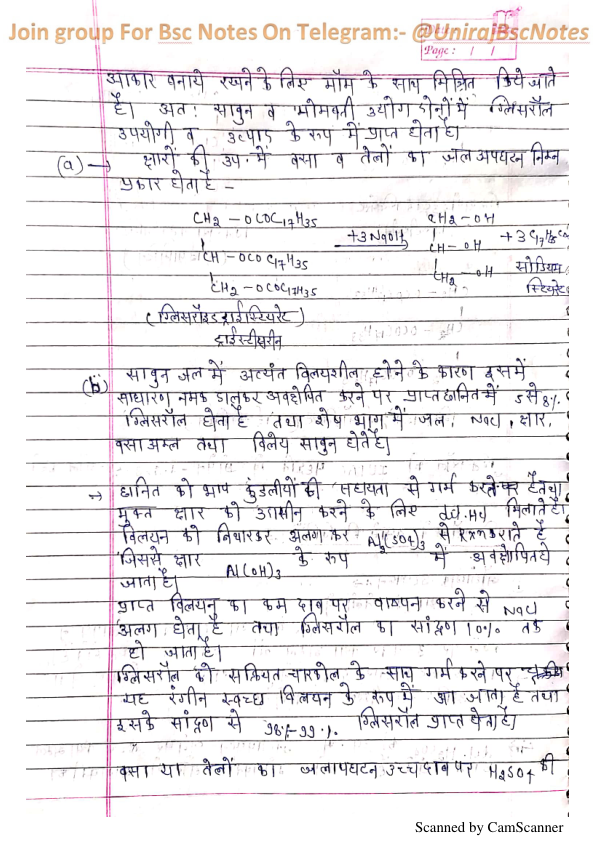 Join group For Bsc Notes On Telegram:- @UnirajBscNotes
Page: / /
आकार बनाये रखने के लिए मॉम के साथ मिश्रित किये जाते
है। अतः साबुन व मोमबत्ती उद्योग दोनों में ग्लिसरॉल
उपयोगी व उत्पाद के रूप में प्राप्त होता है।
(a) → क्षारों की उप. में वसा व तेलों का जल अपघटन निम्न
प्रकार होता है -
CH2 - OCOC17H35 CH2 - OH
CH - OCOC17H35 +3NaOH CH - OH + 3C17H35
CH2 - OCOC17H35 CH2 - OH सोडियम
स्टियरेट
(ग्लिसरॉइड ट्राई स्टियरेट)
ट्राईस्टीयरीन
(b) साबुन जल में अत्यंत विलयशील होने के कारण इसमें
साधारण नमक डालकर अवक्षेपित करने पर प्राप्त छानित में 5 से 8%
ग्लिसरॉल होता है तथा शेष भाग में जल, NaCl, क्षार,
वसा अम्ल तथा विलेय साबुन होते है।
→ छानित को भाप कुंडलीयों की सहायता से गर्म करते है तथा
मुक्त क्षार को उदासीन करने के लिए dil. HCl मिलाते है।
विलयन को निथारकर अलग कर Al2(SO4)3 से Rxn कराते है
जिससे क्षार Al(OH)3 के रूप में अवक्षेपित
जाता है।
प्राप्त विलयन का कम दाब पर वाष्पन करने से NaCl
अलग होता है तथा ग्लिसरॉल का सांद्रण 10% तक
हो जाता है।
ग्लिसरॉल को सक्रियत चारकोल के साथ गर्म करने पर
यह रंगीन स्वच्छ विलयन के रूप में आ जाता है तथा
इसके सांद्रण से 98%-99% ग्लिसरॉल प्राप्त होता है।
वसा या तेलों का जलापघटन उच्च दाब पर H2SO4 की
Scanned by CamScanner